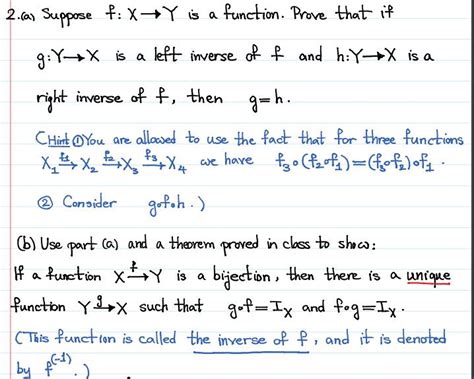 2.(a) Suppose f: X→Y is a function. Prove that if
g: Y→X is a left inverse of f and h: Y→X is a
right inverse of f, then g=h.
(Hint ① You are allowed to use the fact that for three functions
X₁ →f₁ X₂ →f₂ X₃ →f₃ X₄ we have f₃∘(f₂∘f₁)=(f₃∘f₂)∘f₁.
② Consider g∘f∘h.)
(b) Use part (a) and a theorem proved in class to show:
If a function X →f Y is a bijection, then there is a unique
function Y →g X such that g∘f=I_X and f∘g=I_X.
(This function is called the inverse of f, and it is denoted
by f^(-1).)